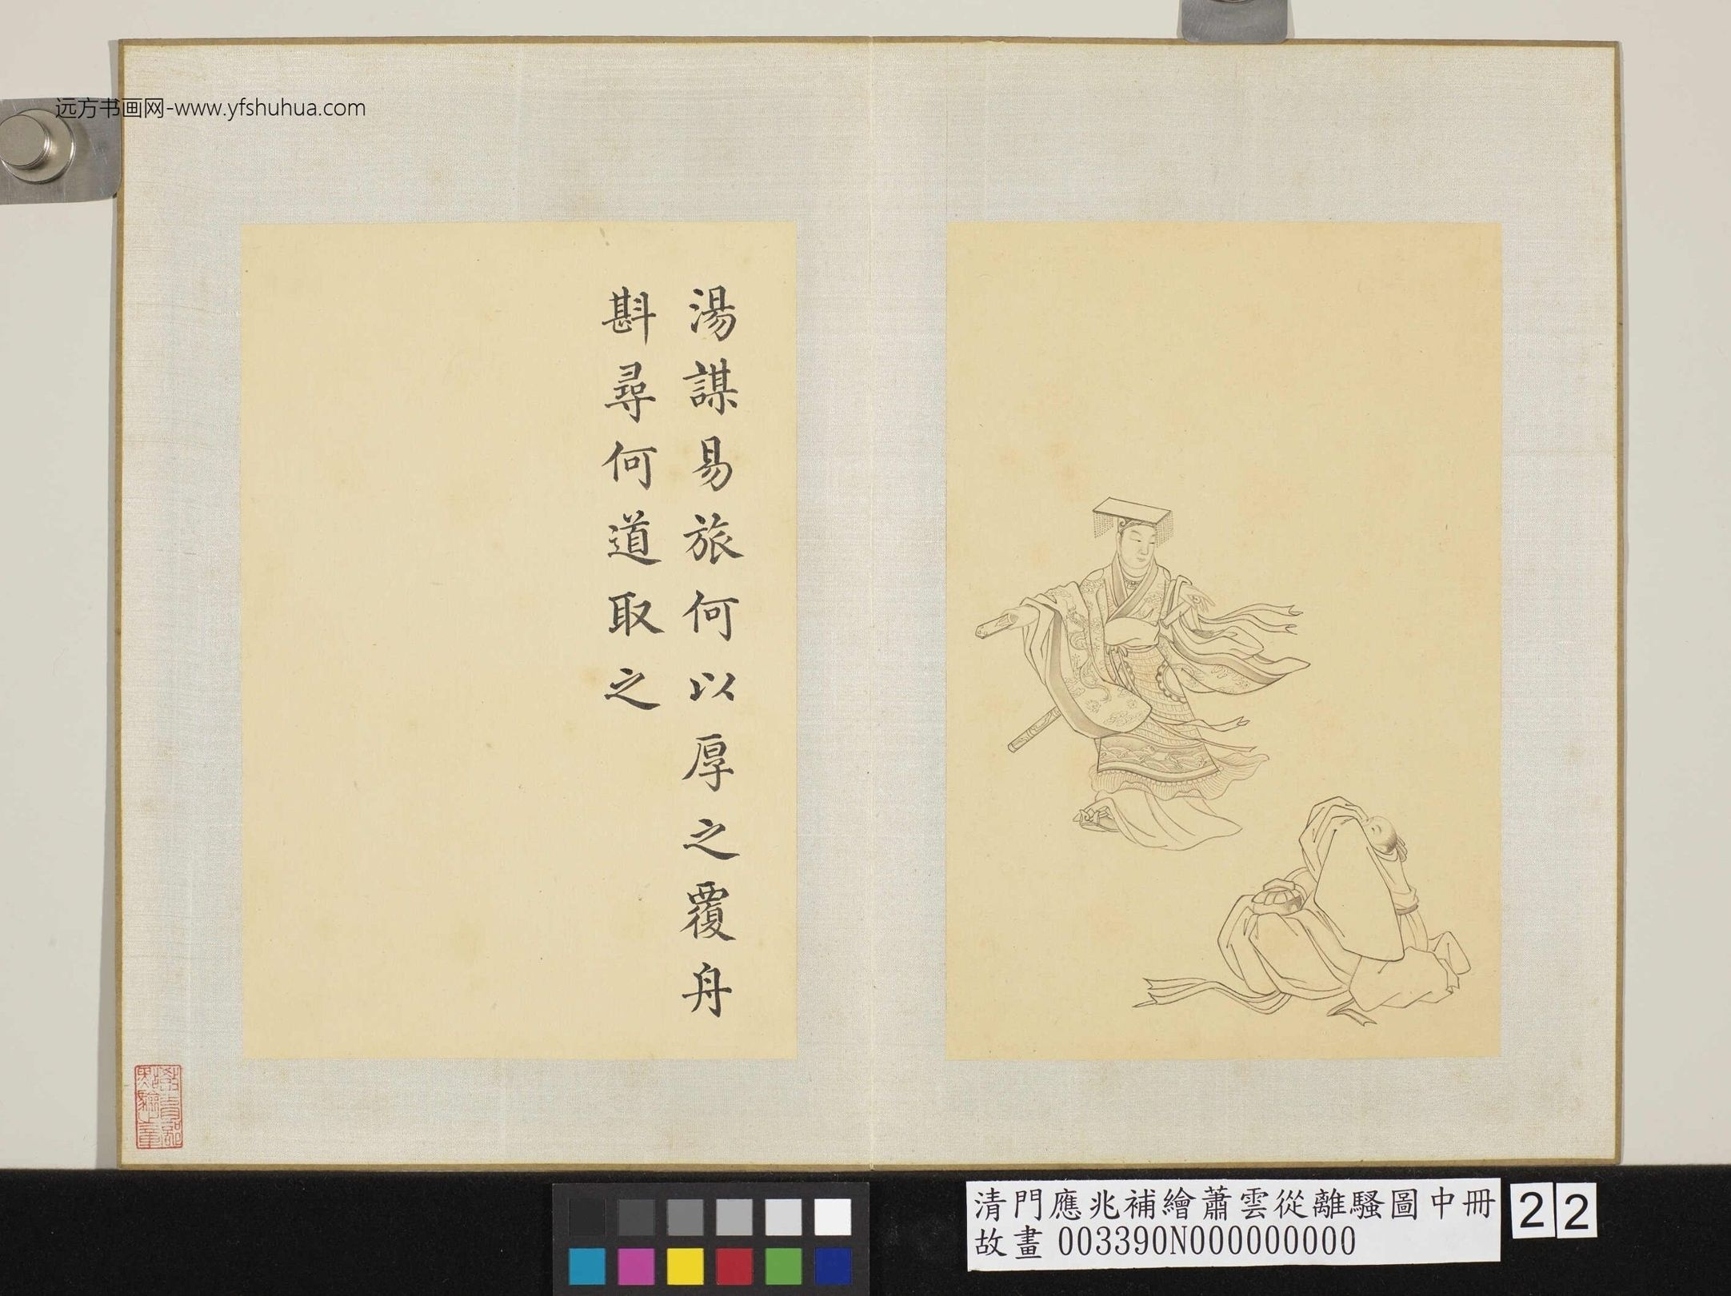 远方书画网-www.yfshuhua.com
湯謀易旅何以厚之覆舟
斟尋何道取之
清門應兆補繪蕭雲從離騷圖中冊
故畫 003390N000000000
22